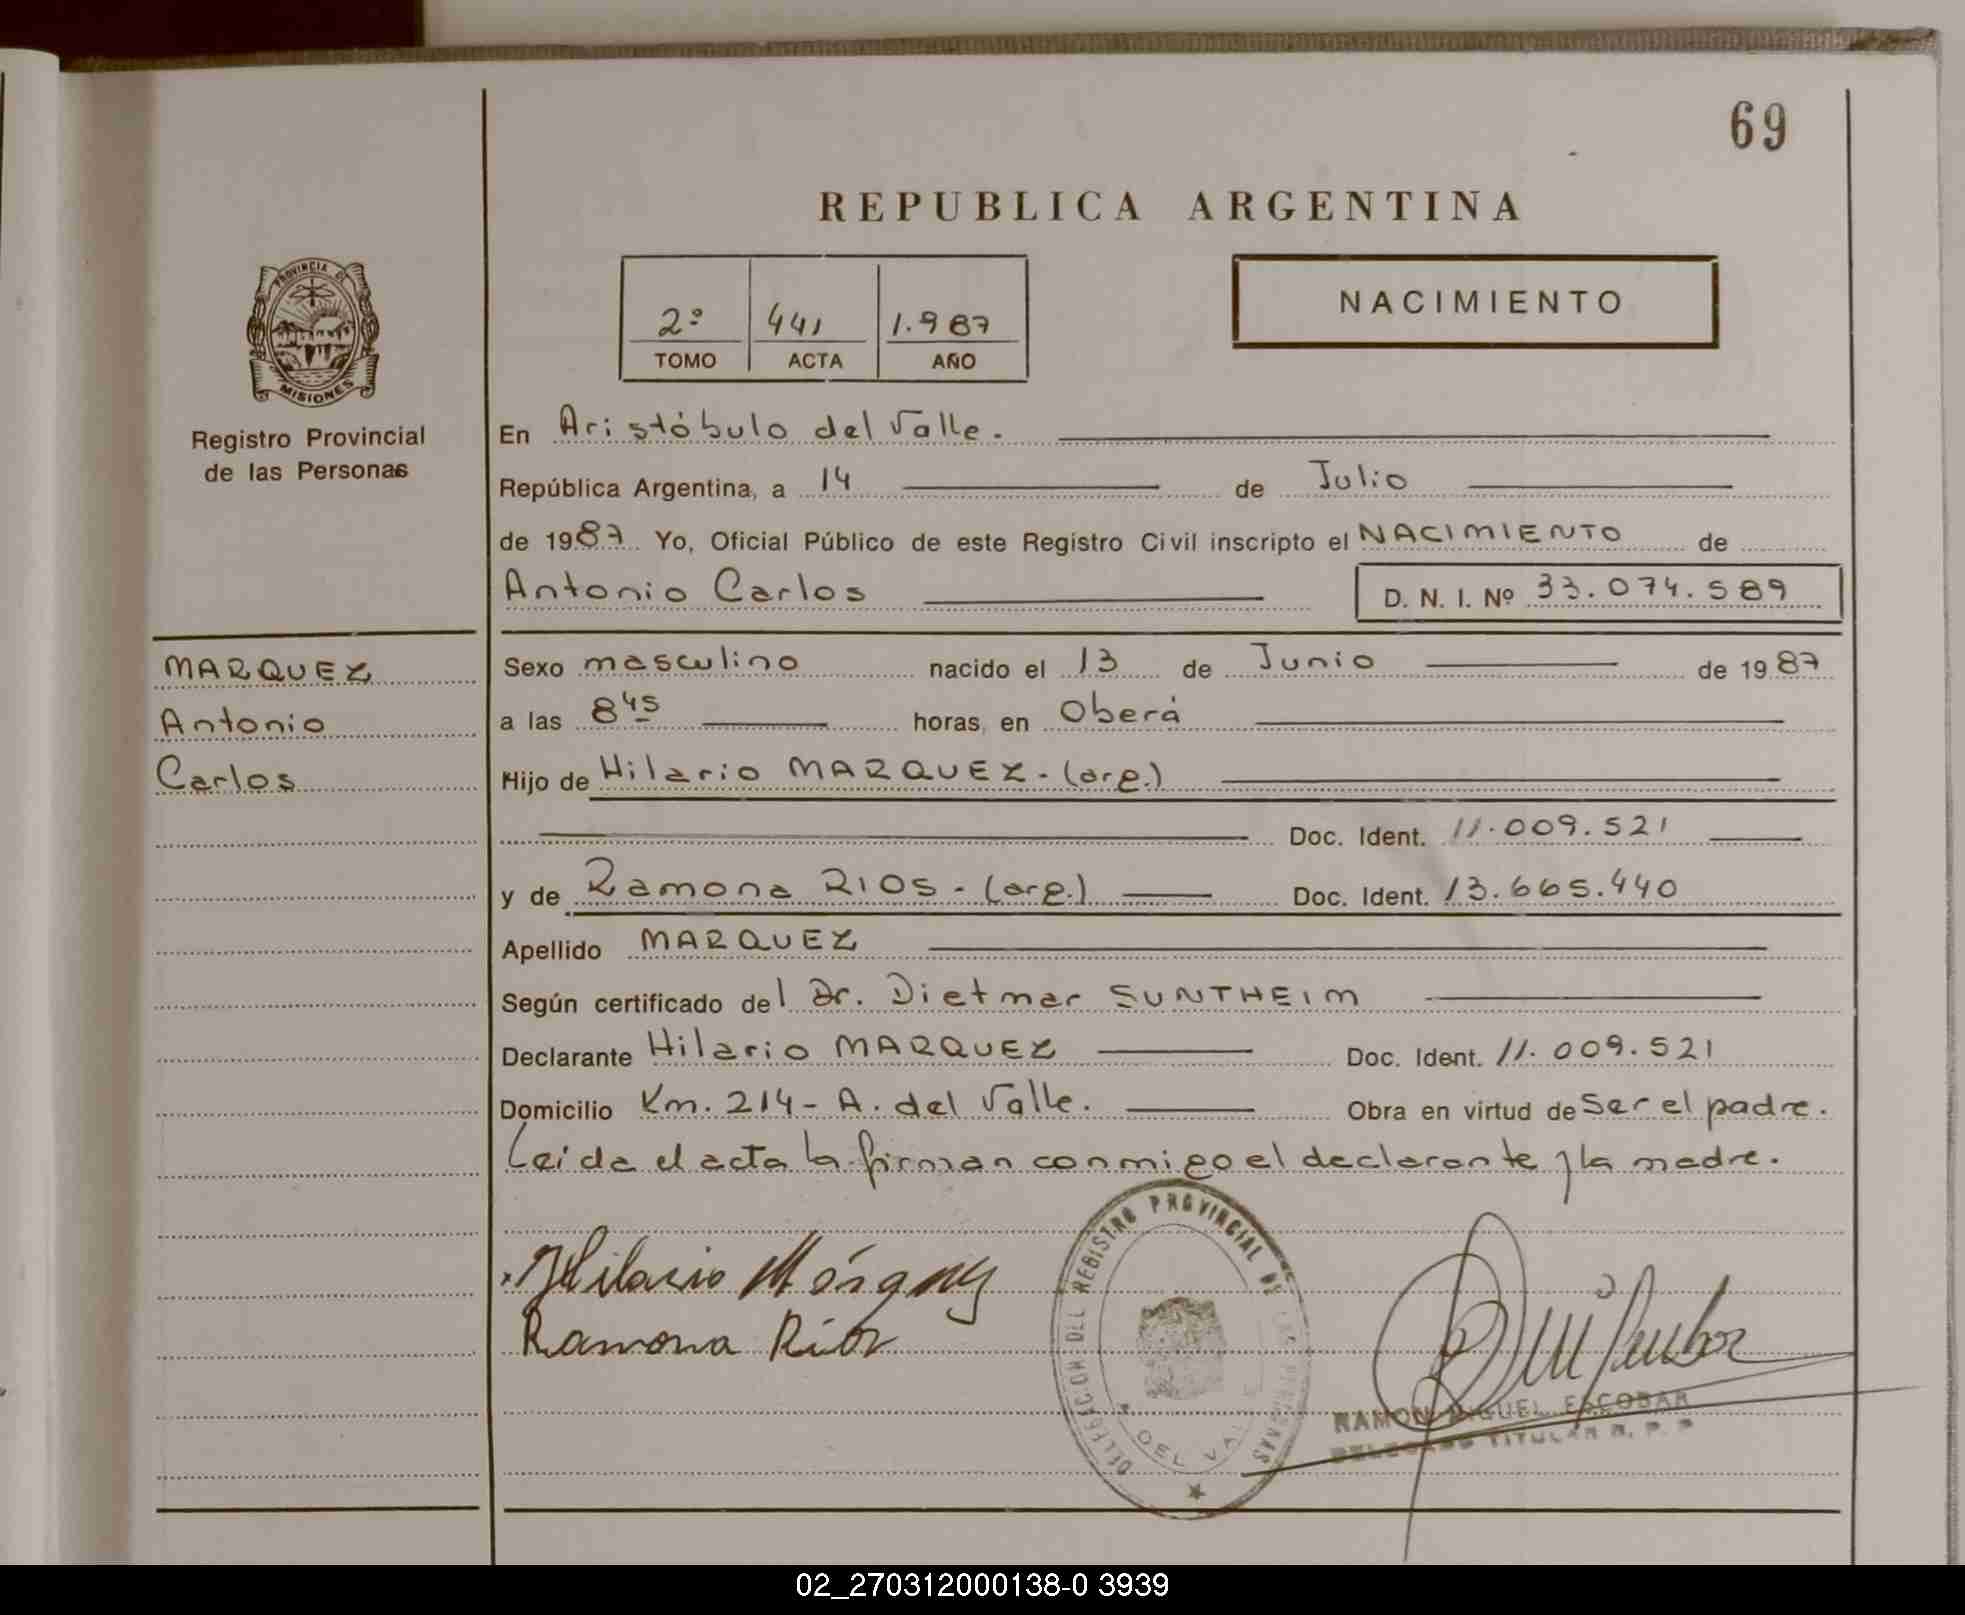 69
REPUBLICA ARGENTINA
PROVINCIA DE
MISIONES
Registro Provincial
de las Personas
2º 441 1.987
TOMO ACTA AÑO
NACIMIENTO
En Aristóbulo del Valle.
República Argentina, a 14 de Julio
de 1987 Yo, Oficial Público de este Registro Civil inscripto el NACIMIENTO de
Antonio Carlos D. N. I. Nº 33.074.589
MARQUEZ
Antonio
Carlos
Sexo masculino nacido el 13 de Junio de 1987
a las 8 45 horas, en Oberá
Hijo de Hilario MARQUEZ - (arg.)
Doc. Ident. 11.009.521
y de Ramona RIOS - (arg.) Doc. Ident. 13.665.440
Apellido MARQUEZ
Según certificado del Dr. Dietmar SUNTHEIM
Declarante Hilario MARQUEZ Doc. Ident. 11.009.521
Domicilio Km. 214 - A. del Valle. Obra en virtud de ser el padre.
Leida el acta la firman conmigo el declarante y la madre.
Hilario Márquez
Ramona Rios
DELEGACION DEL REGISTRO PROVINCIAL DE LAS PERSONAS
A. DEL VALLE
RAMON MIGUEL ESCOBAR
DELEGADO TITULAR R. P. P.
02_270312000138-0 3939